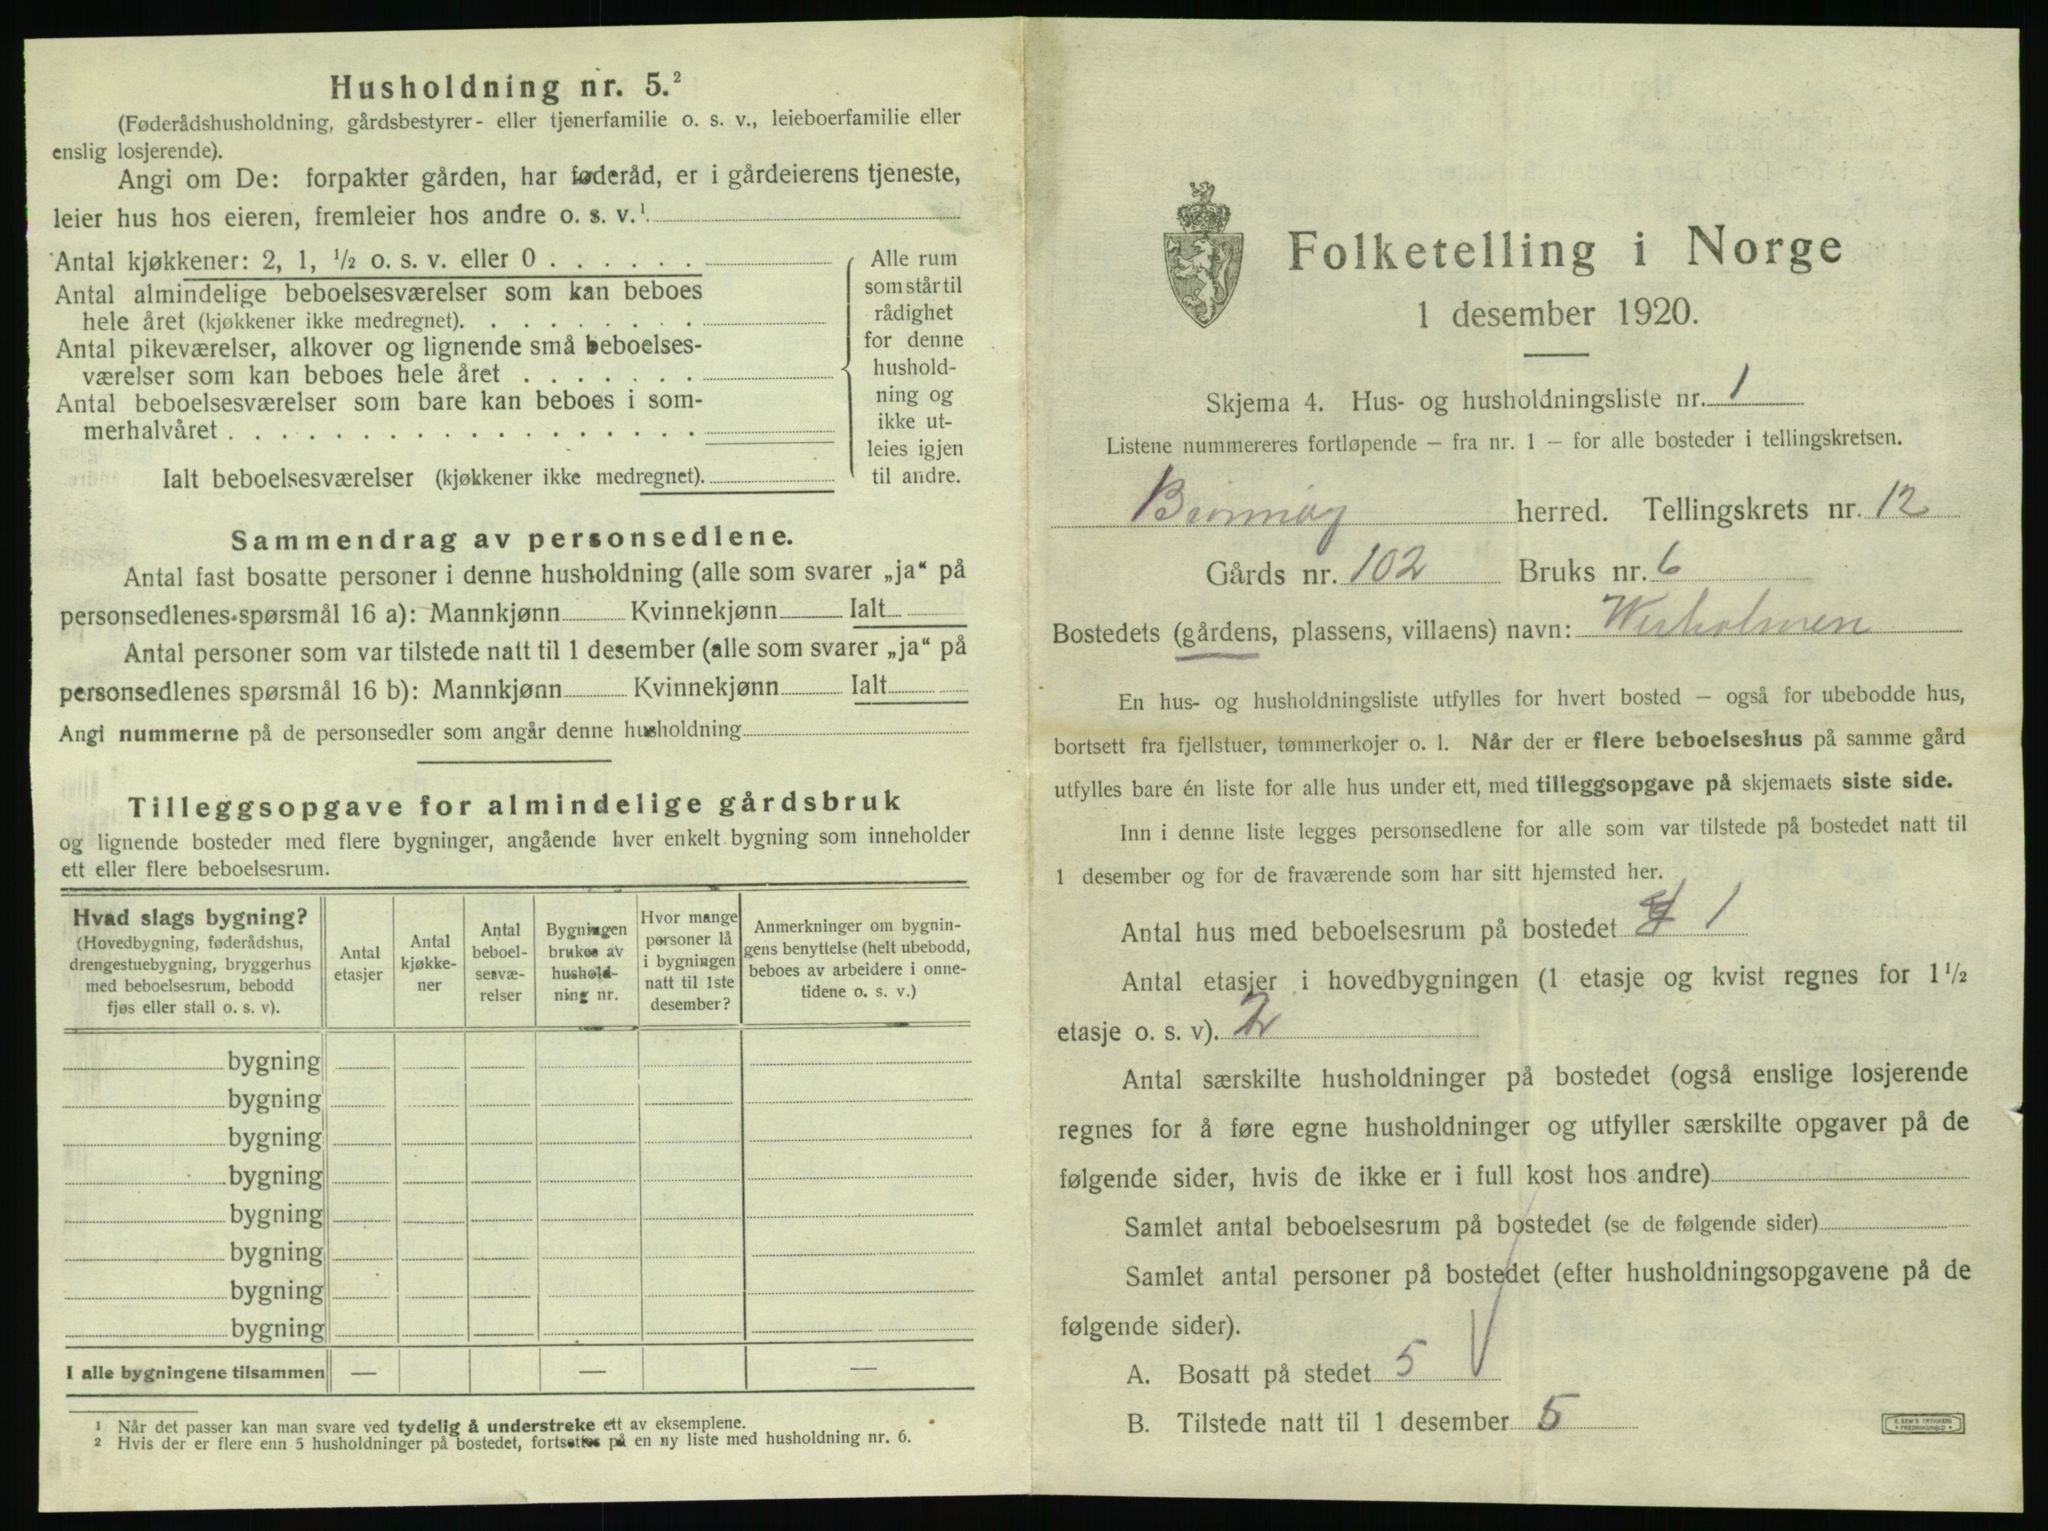 Husholdning nr. 5.²
(Føderådshusholdning, gårdsbestyrer- eller tjenerfamilie o. s. v., leieboerfamilie eller
enslig losjerende).
Angi om De: forpakter gården, har føderåd, er i gårdeierens tjeneste,
leier hus hos eieren, fremleier hos andre o. s. v.¹
Antal kjøkkener: 2, 1, ½ o. s. v. eller 0 . . . . . .
Antal almindelige beboelsesværelser som kan beboes
hele året (kjøkkener ikke medregnet). . . . . . . . .
Antal pikeværelser, alkover og lignende små beboelses-
værelser som kan beboes hele året . . . . . . .
Antal beboelsesværelser som bare kan beboes i som-
merhalvåret . . . . . . . . . . . . . . . . . .
Ialt beboelsesværelser (kjøkkener ikke medregnet).
Alle rum
som står til
rådighet
for denne
hushold-
ning og
ikke ut-
leies igjen
til andre.
Sammendrag av personsedlene.
Antal fast bosatte personer i denne husholdning (alle som svarer „ja“ på
personsedlenes spørsmål 16 a): Mannkjønn Kvinnekjønn Ialt
Antal personer som var tilstede natt til 1 desember (alle som svarer „ja“ på
personsedlenes spørsmål 16 b): Mannkjønn Kvinnekjønn Ialt
Angi nummerne på de personsedler som angår denne husholdning
Tilleggsopgave for almindelige gårdsbruk
og lignende bosteder med flere bygninger, angående hver enkelt bygning som inneholder
ett eller flere beboelsesrum.
Hvad slags bygning?
(Hovedbygning, føderådshus,
drengestuebygning, bryggerhus
med beboelsesrum, bebodd
fjøs eller stall o. s. v).
Antal
etasjer
Antal
kjøkke-
ner
Antal
beboel-
sesvæ-
relser
Bygningen
brukes av
hushold-
ning nr.
Hvor mange
personer lå
i bygningen
natt til 1ste
desember?
Anmerkninger om bygnin-
gens benyttelse (helt ubebodd,
beboes av arbeidere i onne-
tidene o. s. v.)
bygning
bygning
bygning
bygning
bygning
bygning
bygning
bygning
I alle bygningene tilsammen — — —
¹ Når det passer kan man svare ved tydelig å understreke ett av eksemplene.
² Hvis der er flere enn 5 husholdninger på bostedet, fortsettes på en ny liste med husholdning nr. 6.
Folketelling i Norge
1 desember 1920.
Skjema 4. Hus- og husholdningsliste nr. 1
Listene nummereres fortløpende — fra nr. 1 — for alle bosteder i tellingskretsen.
herred. Tellingskrets nr. 12
Gårds nr. 102 Bruks nr. 6
Bostedets (gårdens, plassens, villaens) navn:
En hus- og husholdningsliste utfylles for hvert bosted — også for ubebodde hus,
bortsett fra fjellstuer, tømmerkojer o. l. Når der er flere beboelseshus på samme gård
utfylles bare én liste for alle hus under ett, med tilleggsopgave på skjemaets siste side.
Inn i denne liste legges personsedlene for alle som var tilstede på bostedet natt til
1 desember og for de fraværende som har sitt hjemsted her.
Antal hus med beboelsesrum på bostedet 1
Antal etasjer i hovedbygningen (1 etasje og kvist regnes for 1½
etasje o. s. v). 2
Antal særskilte husholdninger på bostedet (også enslige losjerende
regnes for å føre egne husholdninger og utfyller særskilte opgaver på de
følgende sider, hvis de ikke er i full kost hos andre)
Samlet antal beboelsesrum på bostedet (se de følgende sider)
Samlet antal personer på bostedet (efter husholdningsopgavene på de
følgende sider).
A. Bosatt på stedet 5
B. Tilstede natt til 1 desember 5